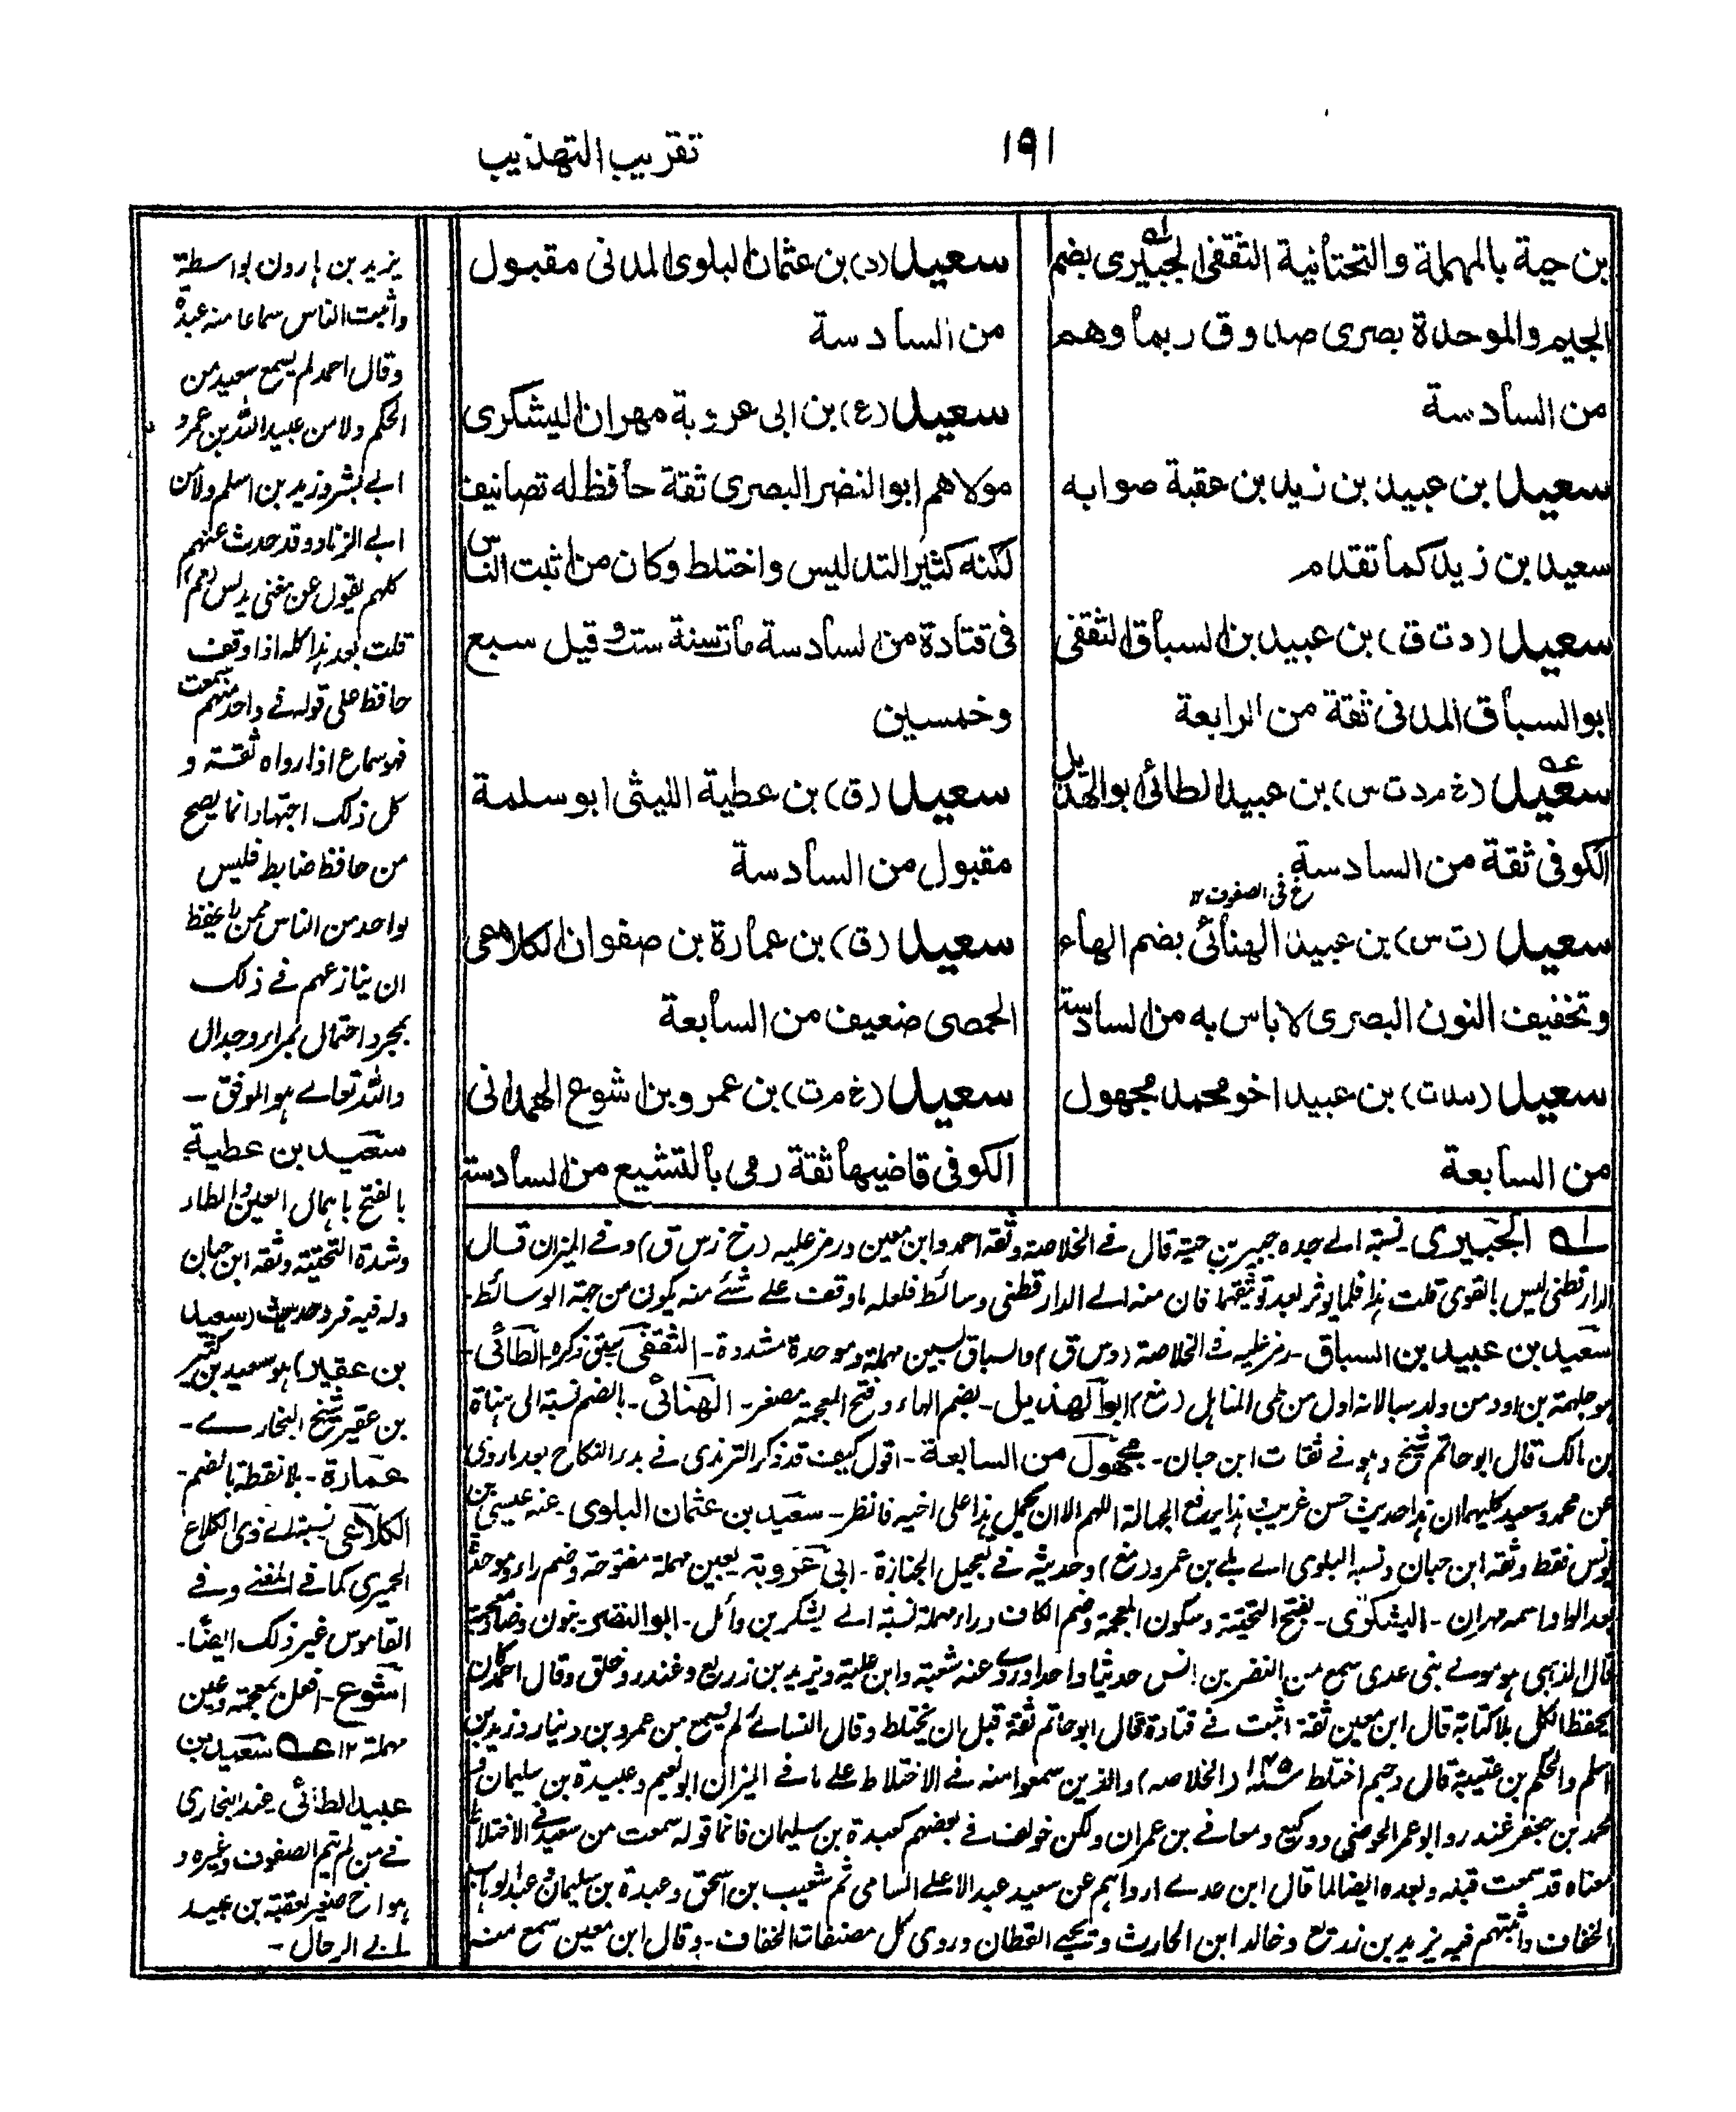 ١٩١
تقريب التهذيب
بن حية بالمهملة والتحتانية الثقفى الجبيرى بضم
الجيم والموحدة بصرى صدوق ربما وهم
من السادسة
سعيد بن عبيد بن زيد بن عقبة صوابه
سعيد بن زيد كما تقدم
سعيد (د ت ق) بن عبيد بن السباق الثقفى
ابو السباق المدنى ثقة من الرابعة
سعيد (خ م د ت س) بن عبيد الطائى ابو الهذيل
الكوفى ثقة من السادسة
خ فى الصفوف ١٢
سعيد (ت س) بن عبيد الهنائى بضم الهاء
وتخفيف النون البصرى لا باس به من السادسة
سعيد (مد ت) بن عبيد اخو محمد مجهول
من السابعة
سعيد (د) بن عثمان البلوى المدنى مقبول
من السادسة
سعيد (ع) بن ابى عروبة مهران اليشكرى
مولاهم ابو النضر البصرى ثقة حافظ له تصانيف
لكنه كثير التدليس واختلط وكان من اثبت الناس
فى قتادة من السادسة مات سنة ست وقيل سبع
وخمسين
سعيد (ق) بن عطية الليثى ابو سلمة
مقبول من السادسة
سعيد (ق) بن عمارة بن صفوان الكلاعى
الحمصى ضعيف من السابعة
سعيد (خ م ت) بن عمرو بن اشوع الهمدانى
الكوفى قاضيها ثقة رمى بالتشيع من السادسة
له الجبيرى۔ نسبة الے جده جبير بن حية قال فے الخلاصة وثقه احمد وابن معين ورمز عليه (خ ز س ق) وفے الميزان قال
الدارقطنى ليس بالقوى قلت هذا قلما يوثر بعد توثيقهما فان منه الے الدارقطنى وسائط فلعله ما وقف علے شئے منه يكون من جهة الوسائط۔
سعيد بن عبيد بن السباق۔ رمز عليه فے الخلاصة (د س ق) والسباق بسين مهملة وموحدة مشددة۔ الثقفى سبق ذكره۔ الطائى۔
هو جلهمة بن اود من ولد سبا لانه اول من طى المناهل (مغ) ابو الهذيل۔ بضم الهاء وفتح المعجمة مصغر۔ الهنائى۔ بالضم نسبة الى هناة
بن مالك قال ابو حاتم شيخ وهو فے ثقات ابن حبان۔ مجهول من السابعة۔ اقول كيف قد ذكر الترمذى فے بدر النكاح بعد ما روى
عن محمد وسعيد كليهما ان هذا حديث حسن غريب هذا يرفع الجهالة اللهم الا ان يحمل هذا على اخيه فانظر۔ سعيد بن عثمان البلوى۔ عنه عيسى بن
يونس فقط وثقه ابن حبان ونسبه البلوى الے بلے بن عمرو (مغ) وحديثه فے تعجيل الجنازة۔ ابى عروبة بعين مهملة مفتوحة وضم راء وموحدة
بعد الواو اسمه مهران۔ اليشكرى۔ بفتح التحتية وسكون المعجمة وضم الكاف وراء مهملة نسبة الے يشكر بن وائل۔ ابو النضر۔ بنون وضاد معجمة
قال الذهبى هو مولے بنى عدى سمع من النضر بن انس حديثا واحدا ورے عنه شعبة وابن علية ويزيد بن زريع وغندر وخلق وقال احمد كان
يحفظ الكل بلا كتابة قال ابن معين ثقة اثبت فے قتادة قال ابو حاتم ثقة قبل ان يختلط وقال النسائے لم يسمع من عمرو بن دينار وزيد بن
اسلم والحكم بن عتيبة قال دحيم اختلط ١٤٥ (الخلاصه) والذين سمعوا منه فے الاختلاط علے ما فے الميزان ابو نعيم وعبيدة بن سليمان و
محمد بن جعفر غندر وابو عمر الحوضى ووكيع ومعافے بن عمران ولكن خولف فے بعضهم كعبدة بن سليمان فانما قوله سمعت من سعيد فے الاختلاط
معناه قد سمعت قبله وبعده ايضا لما قال ابن عدے ارواهم عن سعيد عبد الاعلے السامى ثم شعيب بن اسحق وعبدة بن سليمان وعبد الوهاب
الخفاف واثبتهم فيه يزيد بن زريع وخالد ابن الحارث ويحيے القطان وروى كل مصنفات الخفاف۔ وقال ابن معين سمع منه
يزيد بن هارون بواسطة
واثبت الناس سماعا منه عبدة
وقال احمد لم يسمع سعيد من
الحكم ولا من عبيد الله بن عمرو
ابے بشر وزيد بن اسلم ولا من
ابے الزناد وقد حدث عنهم
كلهم يقول عن معنى يدلس
قلت بعد هذا كله اذا وقف
حافظ على قوله فے واحد منهم سمعت
فهو سماع اذا رواه ثقة و
كل ذلك اجتهاد انما يصح
من حافظ ضابط فليس
لواحد من الناس ممن لم يحفظ
ان ينازعهم فے ذلك
بمجرد احتمال بمراء وجدال
والله تعالے هو الموفق۔
سعيد بن عطية
بالفتح باهمال العين والطاء
وشدة التحتية وثقه ابن حبان
وله فيه فرد حديث (سعيد
بن عقير) هو سعيد بن كثير
بن عقير شيخ البخارے۔
عمارة۔ بلا نقطة بالضم۔
الكلاعى نسبة الے ذى الكلاع
الحميرى كما فے المغنے وفے
القاموس غير ذلك ايضا۔
اشوع۔ افعل بمعجمة وعين
مهملة ١٢ عه سعيد بن
عبيد الطائى۔ عند البخارى
فے من لم يتم الصفوف وغيره و
هو اخ صغير لعقبة بن عبيد
ابے الرحال۔